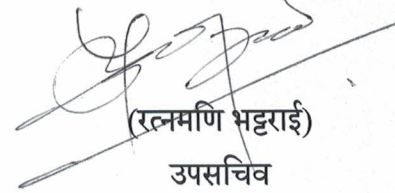 (रत्नमणि भट्टराई)
उपसचिव